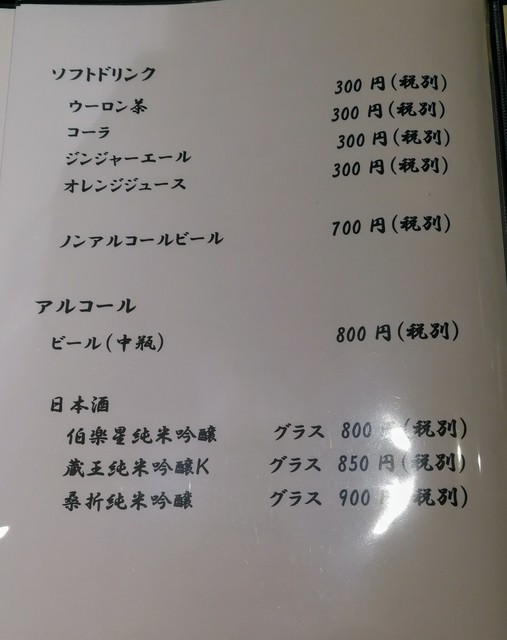 ソフトドリンク
ウーロン茶 300 円(税別)
コーラ 300 円(税別)
ジンジャーエール 300 円(税別)
オレンジジュース 300 円(税別)
ノンアルコールビール 700 円(税別)
アルコール
ビール(中瓶) 800 円(税別)
日本酒
伯楽星純米吟醸 グラス 800 円(税別)
蔵王純米吟醸K グラス 850 円(税別)
桑折純米吟醸 グラス 900 円(税別)